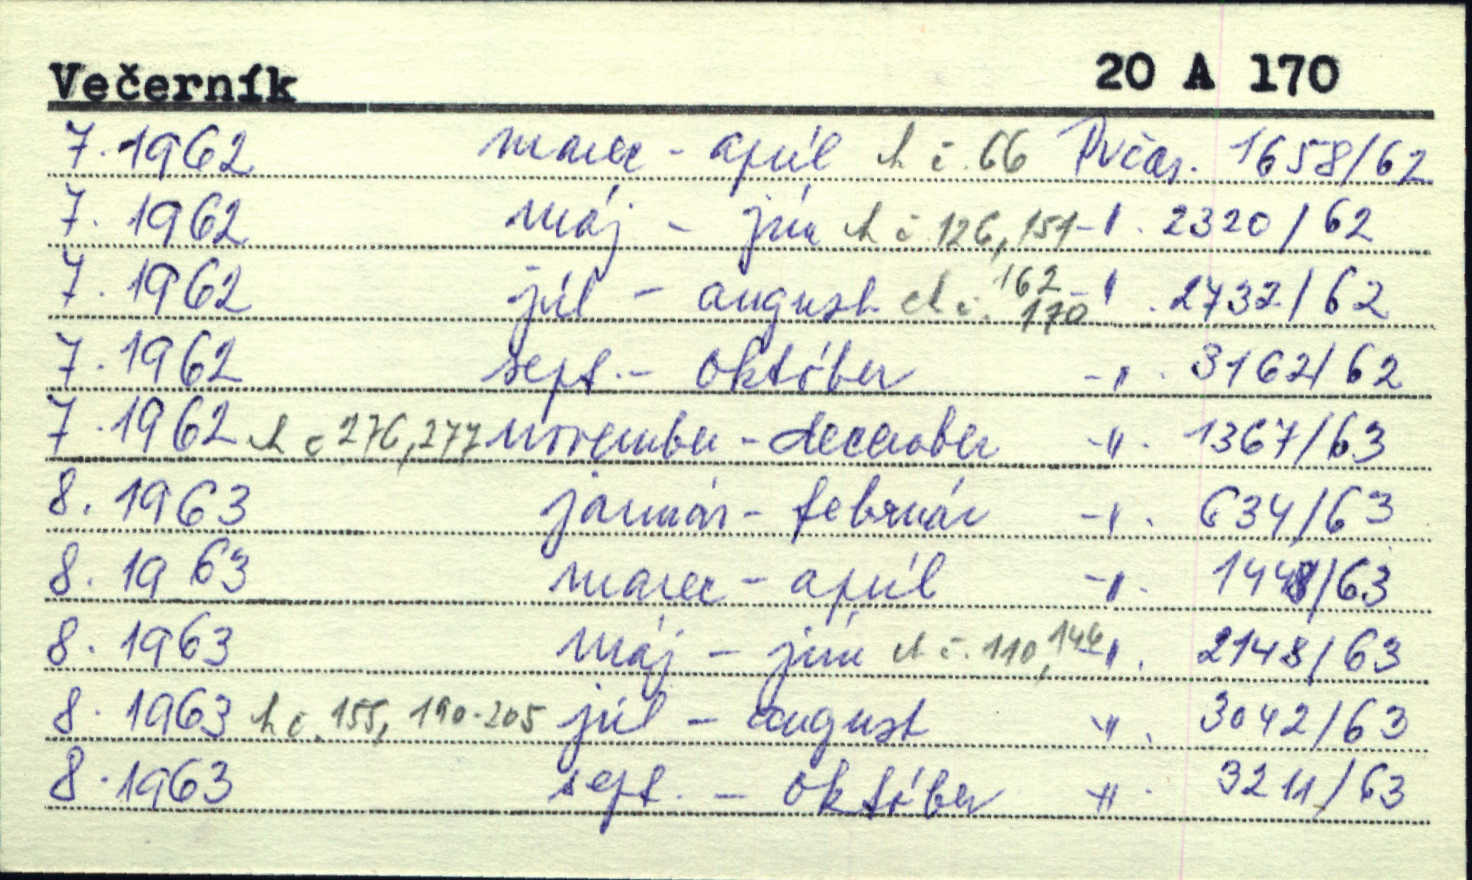 Večerník 20 A 170
7. 1962 marec - apríl ch č. 66 Pvčas. 1658/62
7. 1962 máj - jún ch č 126, 151 -"- 2320/62
7. 1962 júl - august ch č. 162 170 -"- 2732/62
7. 1962 sept. - október -"- 3162/62
7. 1962 ch č 276, 277 november - december -"- 1367/63
8. 1963 január - február -"- 634/63
8. 1963 marec - apríl -"- 1448/63
8. 1963 máj - jún ch č. 110, 146 -"- 2148/63
8. 1963 ch č. 155, 190-205 júl - august -"- 3042/63
8. 1963 sept. - október -"- 3211/63